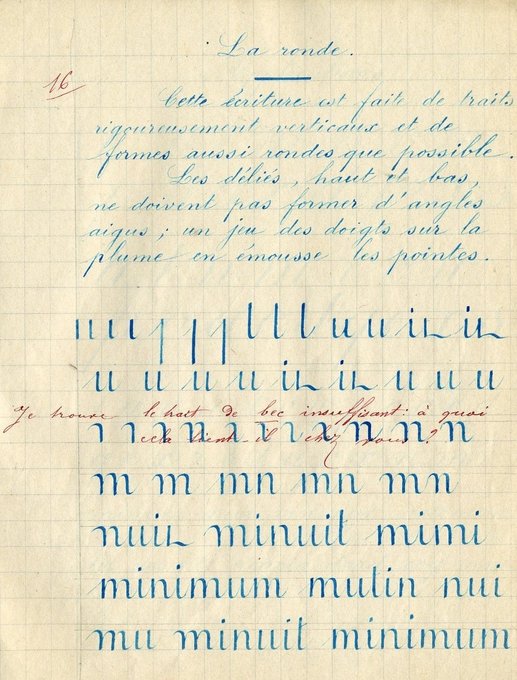 La ronde.
16
Cette écriture est faite de traits
rigoureusement verticaux et de
formes aussi rondes que possible.
Les déliés, haut et bas,
ne doivent pas former d'angles
aigus ; un jeu des doigts sur la
plume en émousse les pointes.
u u u u in in u u u
Je trouve le trait de bec insuffisant : à quoi
cela tient-il chez vous ?
m m mn mn mn
nuin minuit mimi
minimum mutin nui
mu minuit minimum